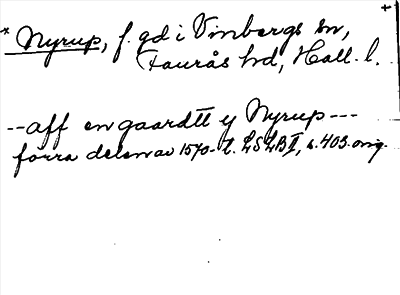 * Nyrup, f. gd i Vinbergs sn,
Faurås hd, Hall. l.
--aff en gaardtt y Nyrup---
förra delen av 1570-t. LSLB II, s. 403. orig.